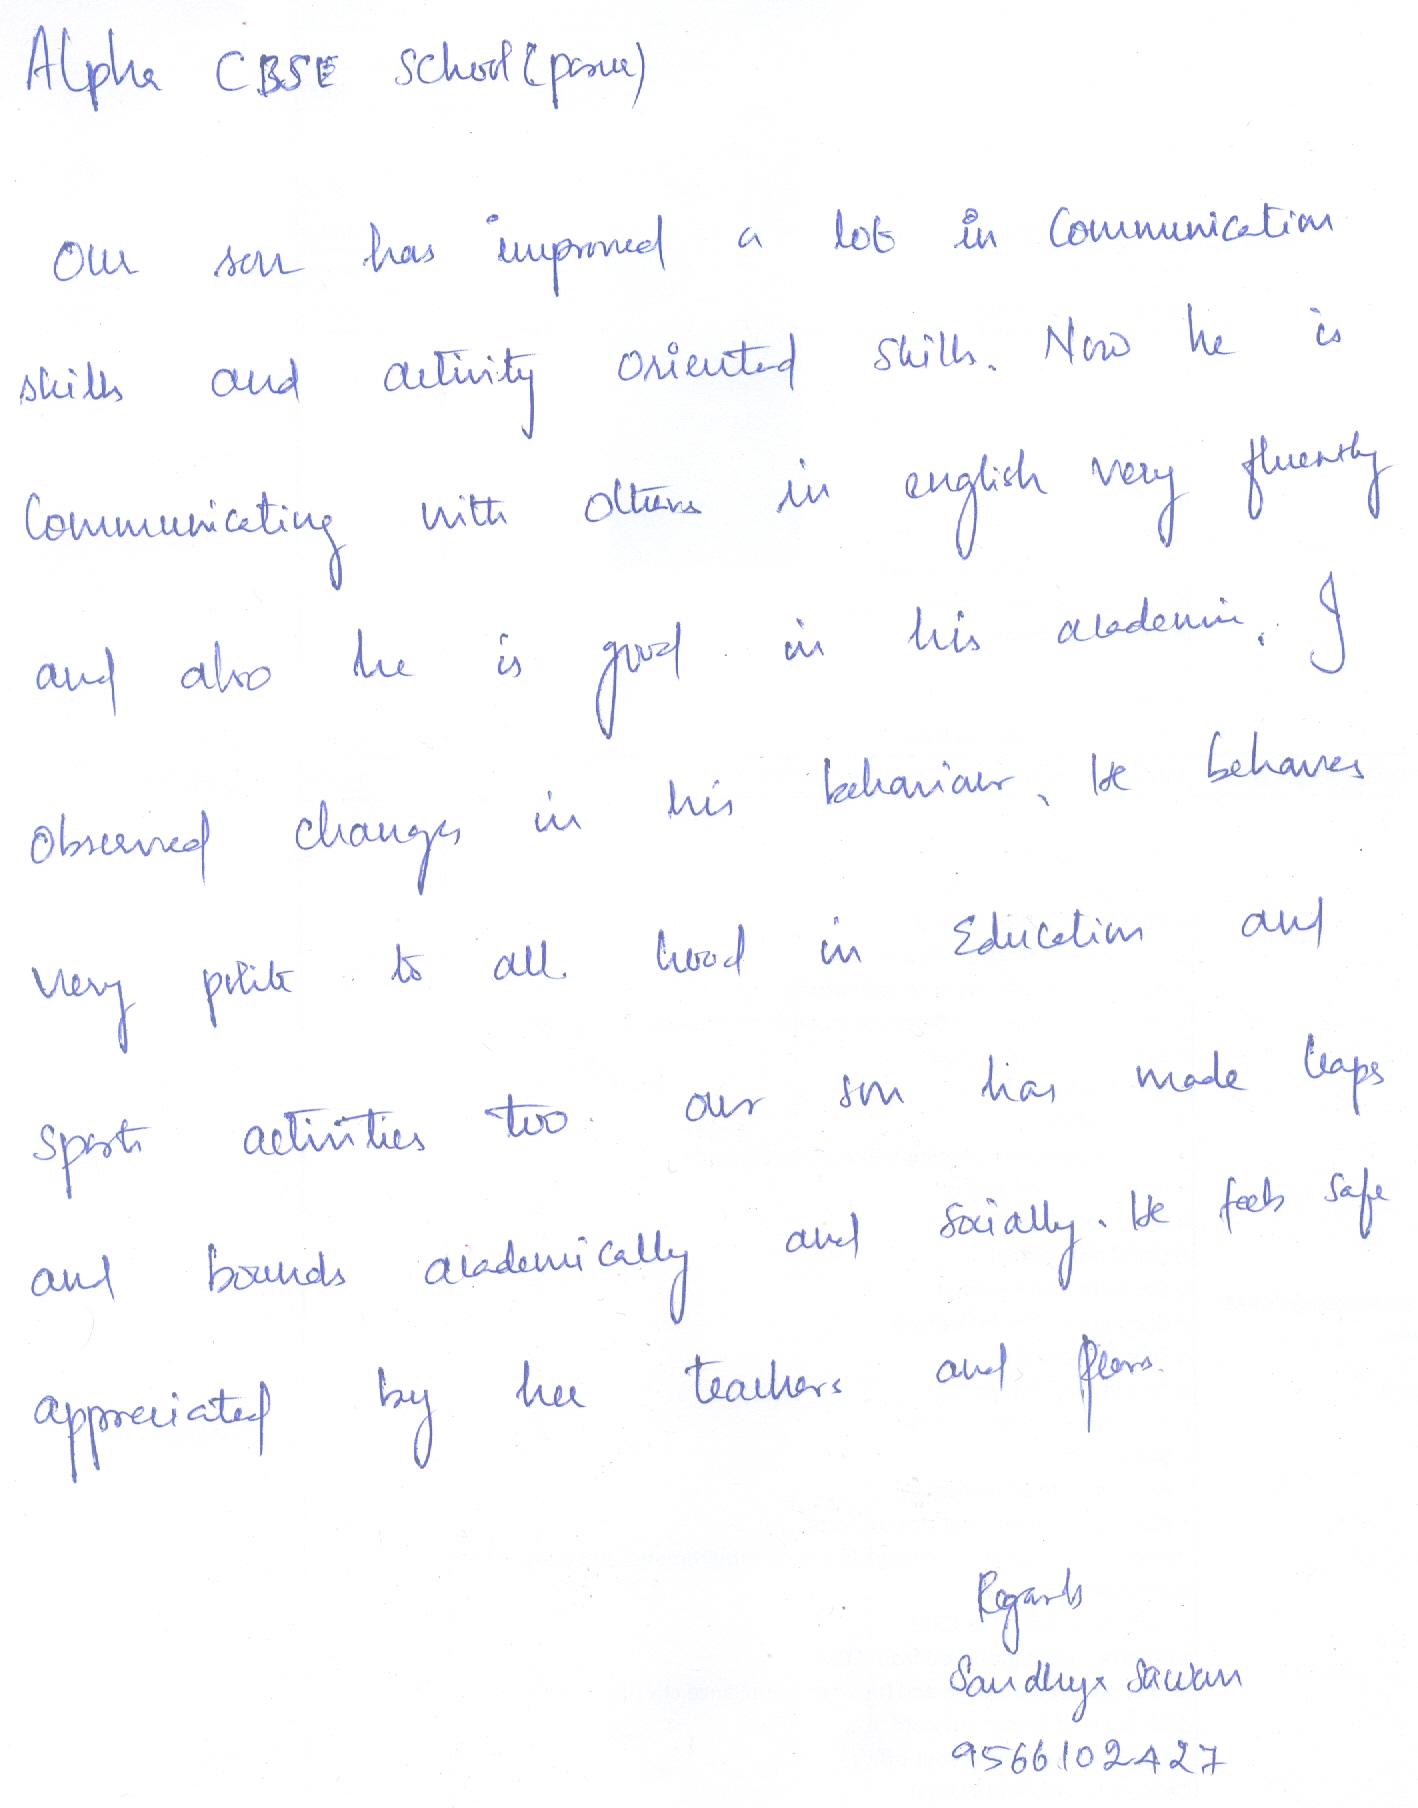 Alpha CBSE School (porur)
Our son has improved a lot in Communication
skills and activity oriented skills. Now he is
Communicating with others in english very fluently
and also he is good in his academic. I
Observed changes in his behaviour. He behaves
very polite to all. Good in Education and
sports activities too. our son has made leaps
and bounds academically and socially. He feels safe
appreciated by her teachers and peers.
Regards
Sandhya Sawan
9566102427